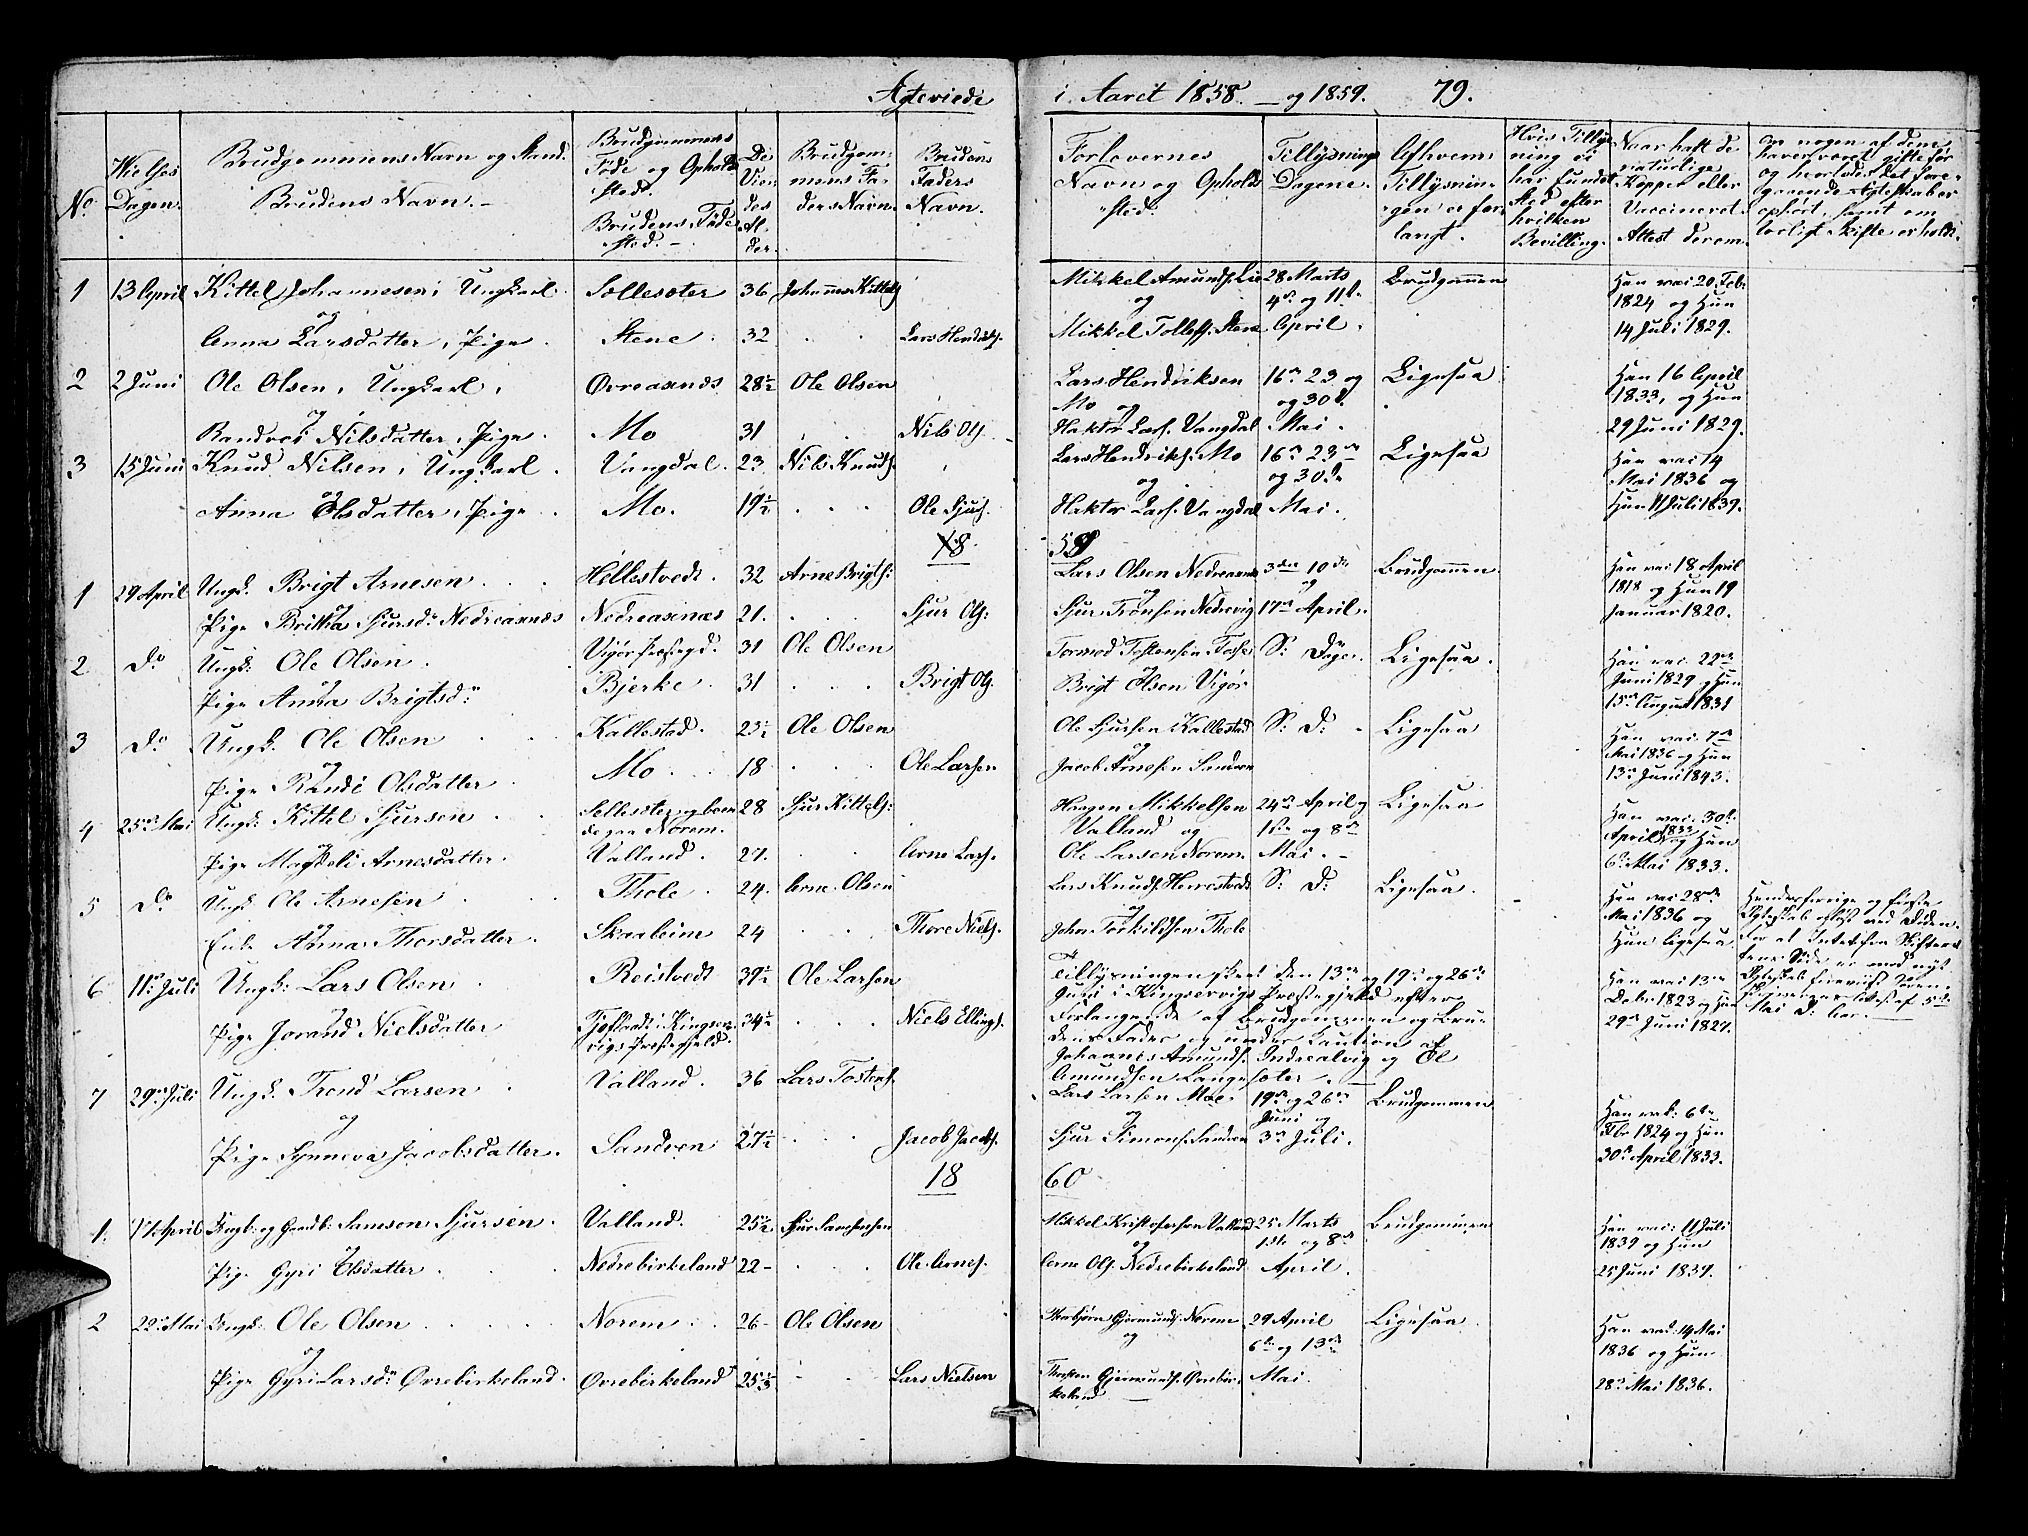 Ægteviede i Aaret 1858. og 1859. 79.
No.
Vielses Dagen.
Brudgommens Navn og Stand.
Brudens Navn.
Brudgommens Føde og Opholdssted.
Brudens Fødested.
De Viedes Alder.
Brudgommens Faders Navn.
Brudens Faders Navn.
Forlovernes Navn og Opholdssted.
Tillysnings Dagene.
Af hvem Tillysningen er forlangt.
Hvis Tillysning ei har fundet Sted efter hvilken Bevilling.
Naar haft de naturlige Kopper eller Vaccineret. Attest derom.
om nogen af dem haver været gift før og hvorvidt det foregaaende Ægteskab er ophørt, samt om lovligt Skifte er holdt.
1 13 April Kittel Johannesen, Ungkarl Sollesæter 36 Johannes Kittels. Mikkel Amunds. Lie 28 Marts Brudgommen Han vac. 20 Feb.
og og 4de og 11te 1824 og Hun
Anna Larsdatter, Pige Stene 32 Lars Hendriks. Mikkel Tollefs. Stene April. 14 Juli 1829.
2 2 Juni Ole Olsen, Ungkarl Øvreaanæs 28½ Ole Olsen Lars Hendriksen 16de 23 og Ligesaa Han 16 April
og Mo og og 30te 1833, og Hun
Randvei Nilsdatter, Pige Mo 31 Nils Ols. Haktor Lars. Vangdal Mai. 29 Juni 1829.
3 15 Juni Knud Nilsen, Ungkarl Vangdal 23 Nils Knuds. Lars Hendriks. Mo 16de 23de Ligesaa Han vac. 14
og og og 30te Mai 1836 og
Anna Olsdatter, Pige Mo. 19½ Ole Sjurs. Haktor Lars. Vangdal Mai. Hun 11 Juli 1839.
18 59
1 29 April Ungk. Brigt Arnesen Hellestvedt 32 Arne Brigts. Lars Olsen Nedreaanæs 3die 10de Brudgommen Han vac. 18 April
og og og 1818 og Hun 19
Pige Britha Sjursdr Nedreaanæs Nedreaanæs 21. Sjur Ols. Sjur Tronsen Nedrevig 17de April. Januar 1820.
2 Do Ungk. Ole Olsen Vigør Præstegd. 31 Ole Olsen Tormod Tostensen S. Dage Ligesaa. Han vac. 22de
og og Juni 1829 og Hun
Pige Anna Brigtsdr Bjerke 31 Brigt Ols. Brigt Olsen Vigør 15de August 1831
3 Do Ungk. Ole Olsen Kallestad. 23½ Ole Olsen Ole Sjursen Kallestad S. D. Ligesaa Han vac. 7de
og og Mai 1836 og Hun
Pige Randi Olsdatter Mo 18 Ole Larsen Jacob Arnesen Sandven 13de Juni 1843.
4 25de Mai Ungk. Kittel Sjursen Sollesæter og boende paa Norem. 28 Sjur Kittels. Haagen Mikkelsen 24de April Ligesaa Han vac. 30te
og Valland og 1ste og 8de April 1833 og Hun
Pige Magdeli Arnesdatter Valland 27. Arne Lars. Ole Larsen Norem. Mai. 6te Mai 1833.
5 Do Ungk. Ole Arnesen Thole 24. Arne Olsen Lars Knuds. S. D. Ligesaa. Han vac. 28de Hendes forrige og første
og og Mai 1836 og Ægteskab opløst ved Døden.
Enke Anna Thorsdatter Skaaleim 24 Thore Niels. John Torkildsen Thole Hun ligesaa For at Intet fra Skifterettens Side er mod nyt Ægteskab
6 11te Juli Ungk. Lars Olsen Reistvedt 39½ Ole Larsen Tillysningen skeet den 13de og 19de og 26de Han vac. 13de
og Juni i Kingservigs Præstegjeld efter Debr 1823 og Hun Mai D. har.
Pige Jorand Nielsdatter Tjoflaadt i Kingservigs Præstegjeld. 34½ Niels Ellings. Forlangende af Brudgommen og Brudens Fader og under Caution af 29de Juni 1827.
Johannes Amunds. Indreaalvig og Ol
Amundsen Langesæter.
7 29de Juli Ungk. Trond Larsen Valland. 36 Lars Tostens. Lars Larsen Moe 19de og 26de Brudgommen Han vac. 6te
og og Juni og Feb. 1824 og Hun
Pige Synneva Jacobsdatter. Sandven 27½ Jacob Jacobs. Sjur Simons. Sandven 3de Juli. 30te April 1833.
18 60
1. 11 April Ungk. og Gaardb. Samson Sjursen Valland. 25½ Sjur Samsonsen Mikkel Kristofersen Valland 25 Marts Brudgommen Han vac. 11 Juli
og og 1ste og 8de 1839 og Hun
Pige Gyri Olsdatter Nedrebirkeland 22 Ole Arnes. Arne Ols. Nedrebirkeland April. 25 Juni 1839.
2 22de Mai Ungk. Ole Olsen Norem 26 Ole Olsen Gjermunds. Norem 29 April Ligesaa Han vac. 14 Mai
og og 6te og 13de 1836 og Hun
Pige Gyri Larsdr Øvrebirkeland. Øvrebirkeland 25⅓ Lars Nielsen Gjermunds. Øvrebirkeland Mai 28de Mai 1836.